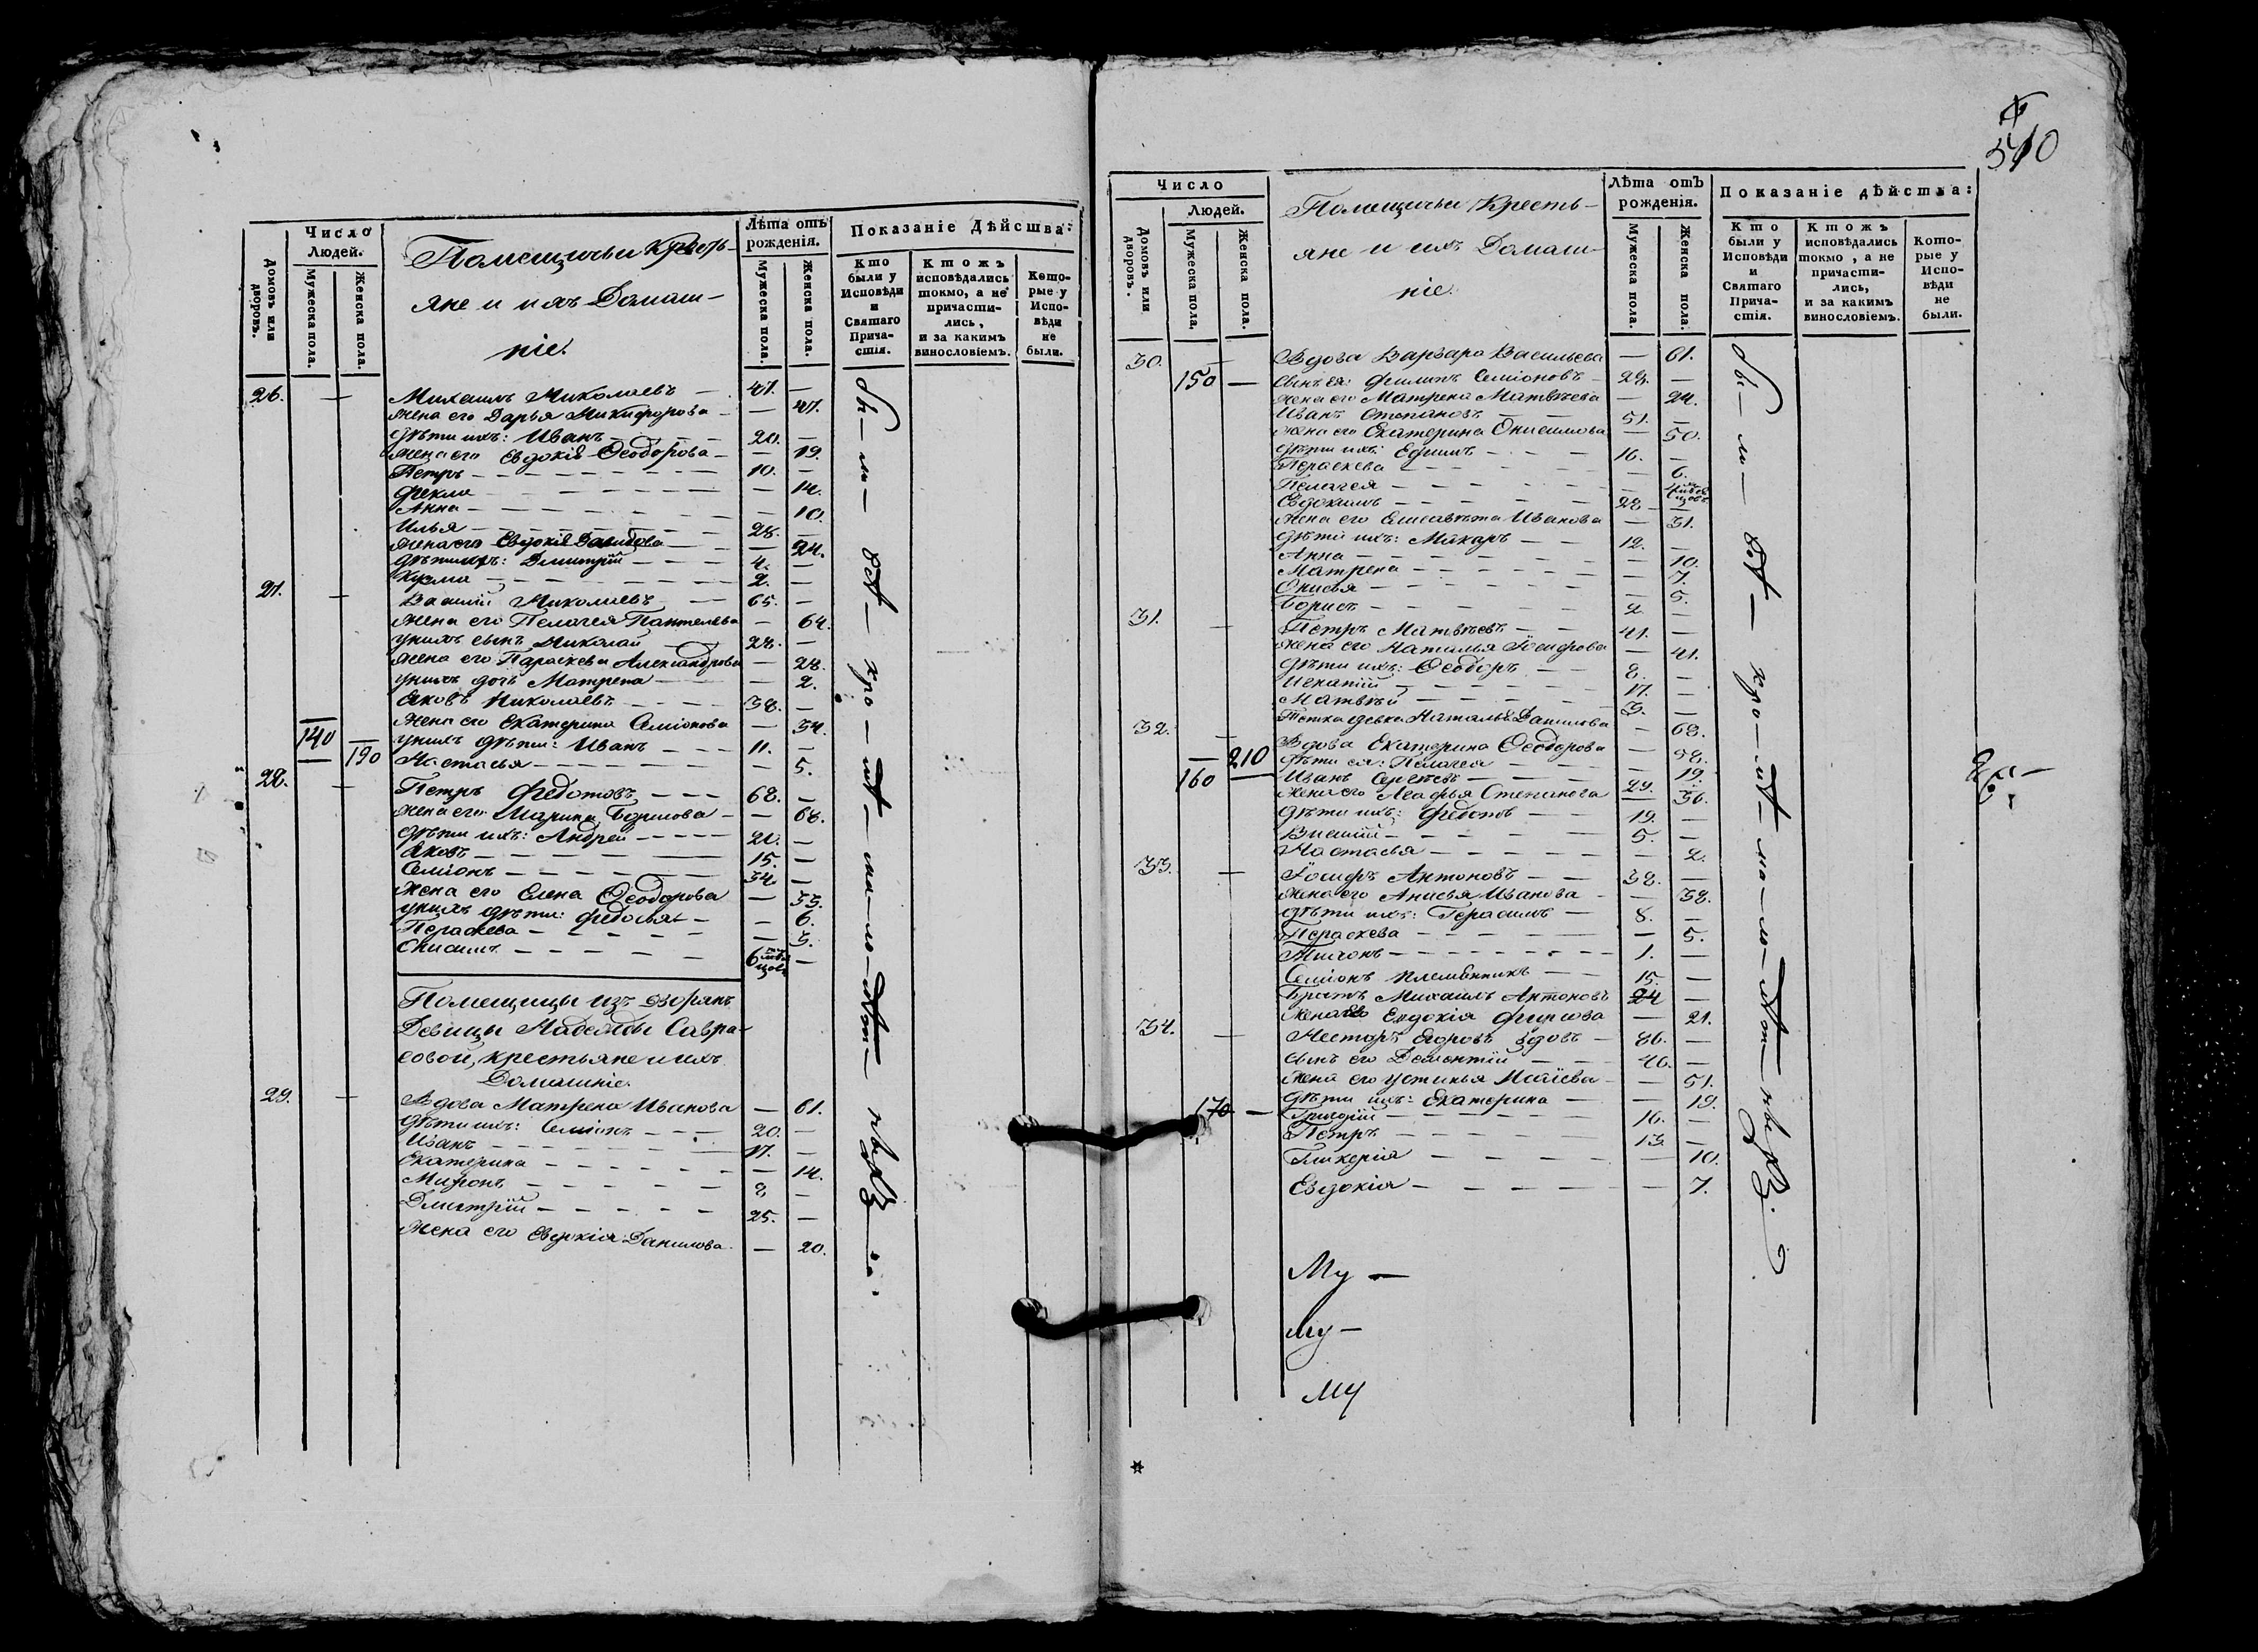 540
Число
Людей.
Домовъ или дворовъ.
Мужеска пола.
Женска пола.
Помещичьи Кресть-
яне и ихъ Домаш-
ніе.
Лѣта отъ рожденія.
Мужеска пола.
Женска пола.
Показаніе Дѣйства:
Кто были у Исповѣди и Святаго Прича-стія.
Ктожъ исповѣдались токмо, а не причасти-лись, и за какимъ винословіемъ.
Кото-рые у Испо-вѣди не были.
26. — Михаилъ Николаевъ — 47. —
жена его Дарья Никифорова — — 47.
дѣти ихъ: Иванъ — 20. —
жена его Евдокія Ѳеодорова — — 19.
Петръ — 10. —
Фекла — — 14.
Анна — — 10.
Илья — 28. —
жена его Евдокія Давидова — — 24.
дѣти ихъ: Димитрій — 4. —
Кузма — 2. —
27. — Василій Николаевъ — 65. —
жена его Пелагея Пантелѣева — 64.
у нихъ сынъ Николай — 28. —
жена его Параскева Александрова — 28.
у нихъ дочь Матрена — — 2.
Яковъ Николаевъ — 38. —
жена его Екатерина Семіонова — 34.
140 у нихъ дѣти: Иванъ — 11. —
190 Настасья — — 5.
28. — Петръ Федотовъ — 68. —
жена его Марина Борисова — — 68.
дѣти ихъ: Андрей — 21. —
Яковъ — 15. —
Семіонъ — 34. —
жена его Елена Ѳеодорова — 33.
у нихъ дѣти: Федосья — — 6.
Параскева — — 3.
Онисимъ — 6 мѣсяцовъ —
Помещицы изъ дворянъ
Девицы Надежды Савра-
совой, крестьяне и ихъ
Домашніе.
29. — Вдова Матрена Иванова — 61.
дѣти ихъ: Семіонъ — 20. —
Иванъ — 17. —
Екатерина — — 14.
Миронъ — 8 —
Дмитрій — 25. —
жена его Евдокія Данилова — 20.
Число
Людей.
Домовъ или дворовъ.
Мужеска пола.
Женска пола.
Помещичьи Кресть-
яне и ихъ Домаш-
ніе.
Лѣта отъ рожденія.
Мужеска пола.
Женска пола.
Показаніе дѣйства:
Кто были у Исповѣди и Святаго Прича-стія.
Ктожъ исповѣдались токмо, а не причасти-лись, и за какимъ винословіемъ.
Кото-рые у Испо-вѣди не были.
30. — Вдова Варвара Васильева — 61.
150 — сынъ ея: Филипъ Семіоновъ — 29. —
жена его Матрена Матвѣева — 24.
Иванъ Степановъ — 51. —
жена его Екатерина Онисимова — 50.
дѣти ихъ: Ефимъ — 16. —
Параскева — — 6.
Пелагея —
Евдокимъ — 28 —
жена его Елисавѣта Иванова — 31.
дѣти ихъ: Макаръ — 12. —
Анна — — 10.
Матрена — — 7.
Онисья — — 5.
Борисъ — 2 —
31. — Петръ Матвѣевъ — 41. —
жена его Наталья Іосифова — 41.
дѣти ихъ: Ѳеодоръ — 8. —
Игнатій — 17. —
Матвѣй — 3. —
Тетка девка Наталья Данилова — 68.
32. — Вдова Екатерина Ѳеодорова —
210 дѣти ея: Пелагея — — 19.
160 — Иванъ Сергѣевъ — 29. —
жена его Агафья Степанова — 36.
дѣти ихъ: Федотъ — 19. —
Василій — 5. —
Настасья — — 2.
33. — Іосифъ Антоновъ — 38. —
жена его Анисья Иванова — 38.
дѣти ихъ: Герасимъ — 8. —
Параскева — — 5.
Тихонъ — 1. —
Семіонъ племянникъ — 15. —
Братъ Михаилъ Антоновъ 24 —
жена его Евдокія Фирсова — 21.
34. — Несторъ Егоровъ вдовъ — 86. —
сынъ его Дементій — 46. —
жена его Устинья Моѵсѣева — 51.
дѣти ихъ: Екатерина — — 19.
170 — Григорій — 16. —
Петръ — 13. —
Гликерія — — 10.
Евдокія — — 7.
Му —
Му —
Му